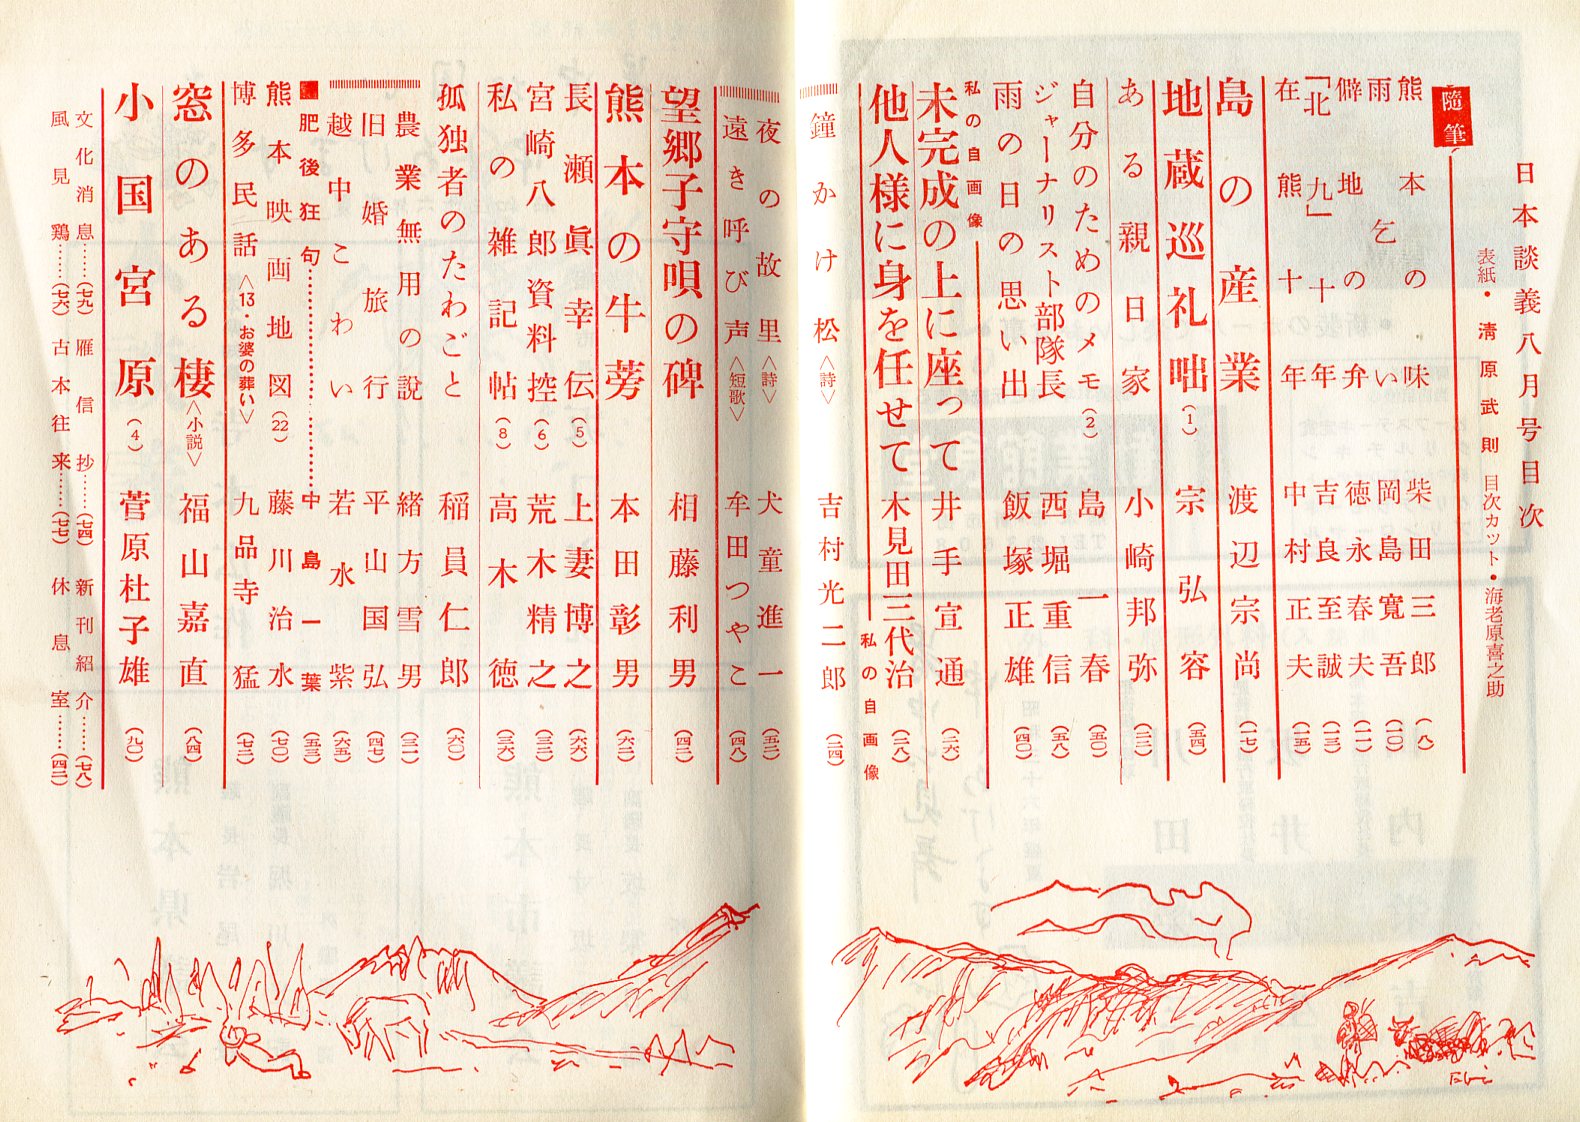 日本談義八月号目次
表紙・清原武則 目次カット・海老原喜之助
隨筆
熊本の味 柴田三郎 (八)
雨乞い 岡島寛吾 (一〇)
僻地の弁 徳永春夫 (一一)
「北九」十年 吉良至誠 (一三)
在熊十年 中村正夫 (一五)
島の産業 渡辺宗尚 (一七)
地蔵巡礼咄(1) 宗弘容 (五四)
ある親日家 小崎邦弥 (二二)
自分のためのメモ(2) 島一春 (五〇)
ジャーナリスト部隊長 西堀重信 (五八)
雨の日の思い出 飯塚正雄 (四〇)
私の自画像
未完成の上に座って 井手宣通 (二六)
他人様に身を任せて 木見田三代治 (二八)
私の自画像
鐘かけ松〈詩〉 吉村光二郎 (二四)
夜の故里〈詩〉 犬童進一 (五二)
遠き呼び声〈短歌〉 牟田つやこ (四八)
望郷子守唄の碑 相藤利男 (四二)
熊本の牛蒡 本田彰男 (六二)
長瀬眞幸伝(5) 上妻博之 (六六)
宮崎八郎資料控(6) 荒木精之 (三二)
私の雑記帖(8) 高木徳 (三六)
孤独者のたわごと 稲員仁郎 (六〇)
農業無用の説 緒方雪男 (三一)
旧婚旅行 平山国弘 (四七)
越中こわい 若水紫 (六五)
■肥後狂句…… 中島一葉 (五三)
熊本映画地図(22) 藤川治水 (七〇)
博多民話〈13・お婆の葬い〉 九品寺猛 (七二)
窓のある棲〈小説〉 福山嘉直 (八四)
小国宮原(4) 菅原杜子雄 (九〇)
文化消息……(七九) 雁信抄……(七四) 新刊紹介……(七八)
風見鶏……(七六) 古本往来……(七七) 休息室……(四二)
Ebi